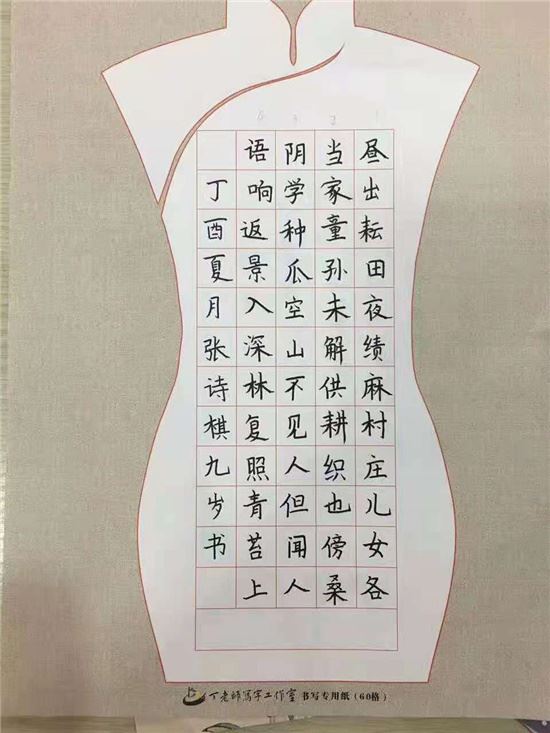 昼出耘田夜绩麻村庄儿女各
当家童孙未解供耕织也傍桑
阴学种瓜空山不见人但闻人
语响返景入深林复照青苔上
丁酉夏月张诗棋九岁书
丁老師寫字工作室 书写专用纸(60格)